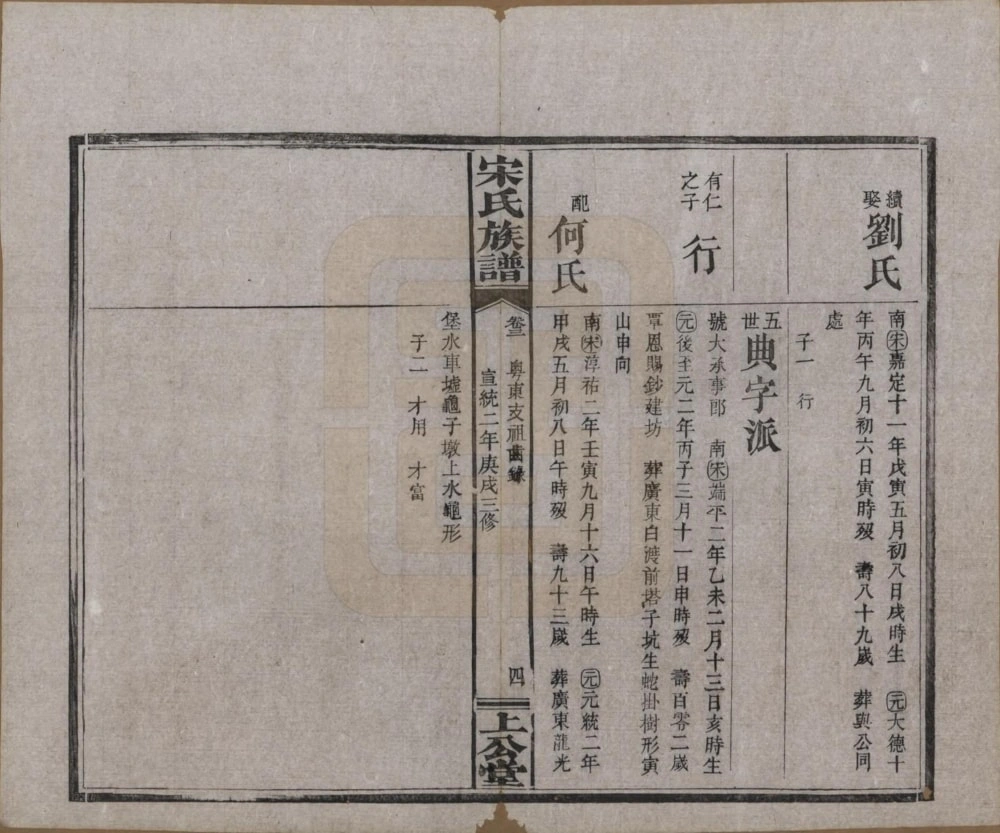 續娶劉氏
南宋嘉定十一年戊寅五月初八日戌時生　元大德十
年丙午九月初六日寅時歿　壽八十九歲　葬與公同
處
子一　行
五世典字派
有仁之子　行
號大承事郎　南宋端平二年乙未二月十三日亥時生
元後至元二年丙子三月十一日申時歿　壽百零二歲
覃恩賜鈔建坊　葬廣東白渡前塔子坑生蛇掛樹形寅
山申向
配何氏
南宋淳祐二年壬寅九月十六日午時生　元元統二年
甲戌五月初八日午時歿　壽九十三歲　葬廣東龍光
宋氏族譜
卷三　粵東支祖齒錄
宣統二年庚戌三修
四
上公堂
堡水車墟龜子墩上水龜形
子二　才用　才富